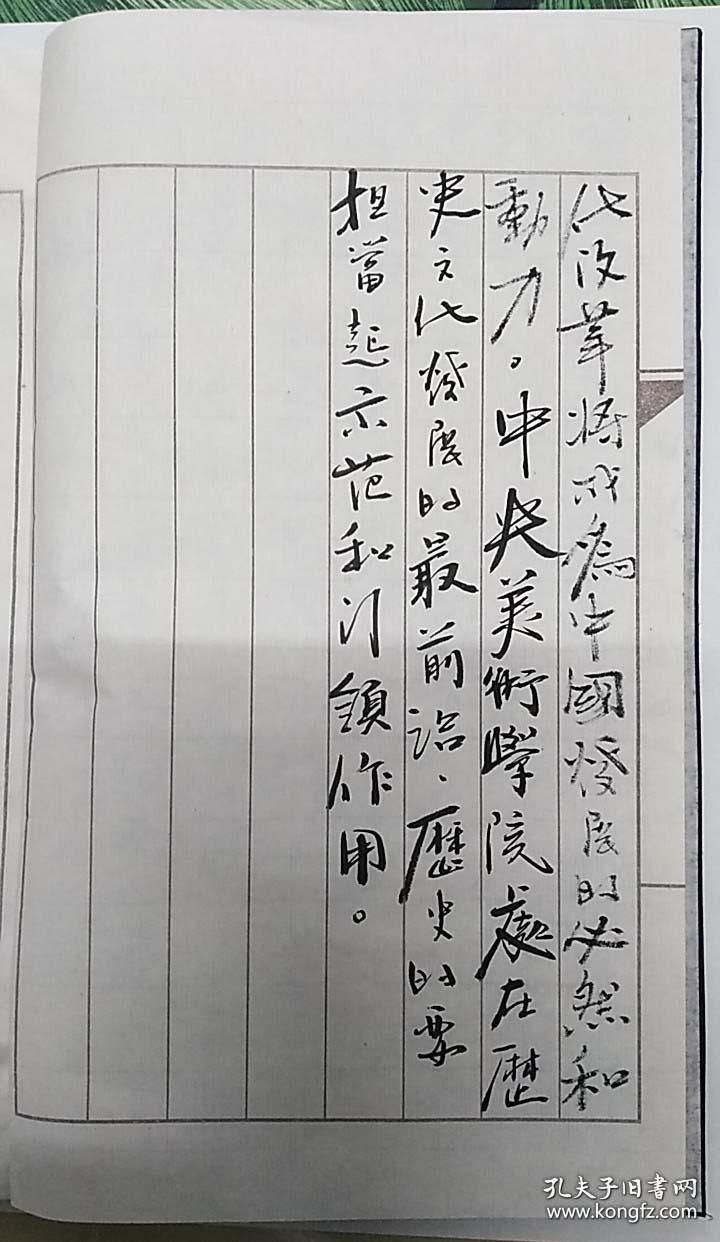 化改革将成為中國發展的必然和
動力。中央美術學院處在歷
史文化發展的最前沿、歷史的要
担當起示范和引領作用。
孔夫子旧书网
www.kongfz.com